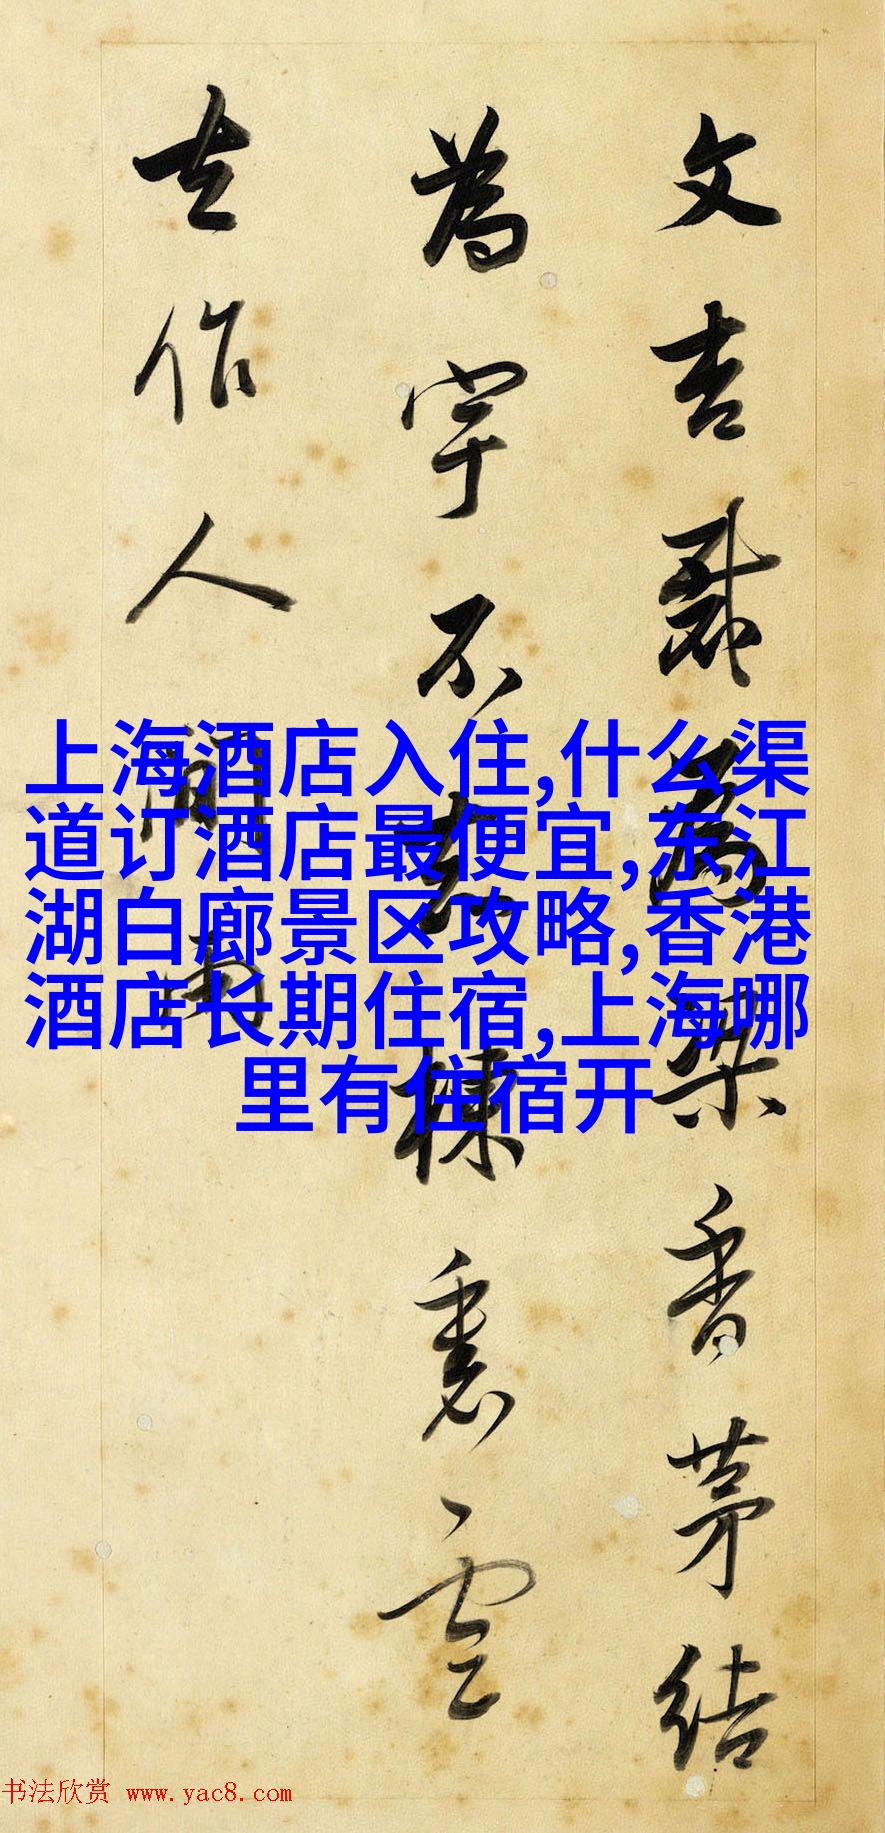 文杏裁為梁香茅結
為宇不知棟裏雲
去作人間雨
上海酒店入住,什么渠
道订酒店最便宜,东江
湖白廊景区攻略,香港
酒店长期住宿,上海哪
里有住宿开
书法欣赏 www.yac8.com